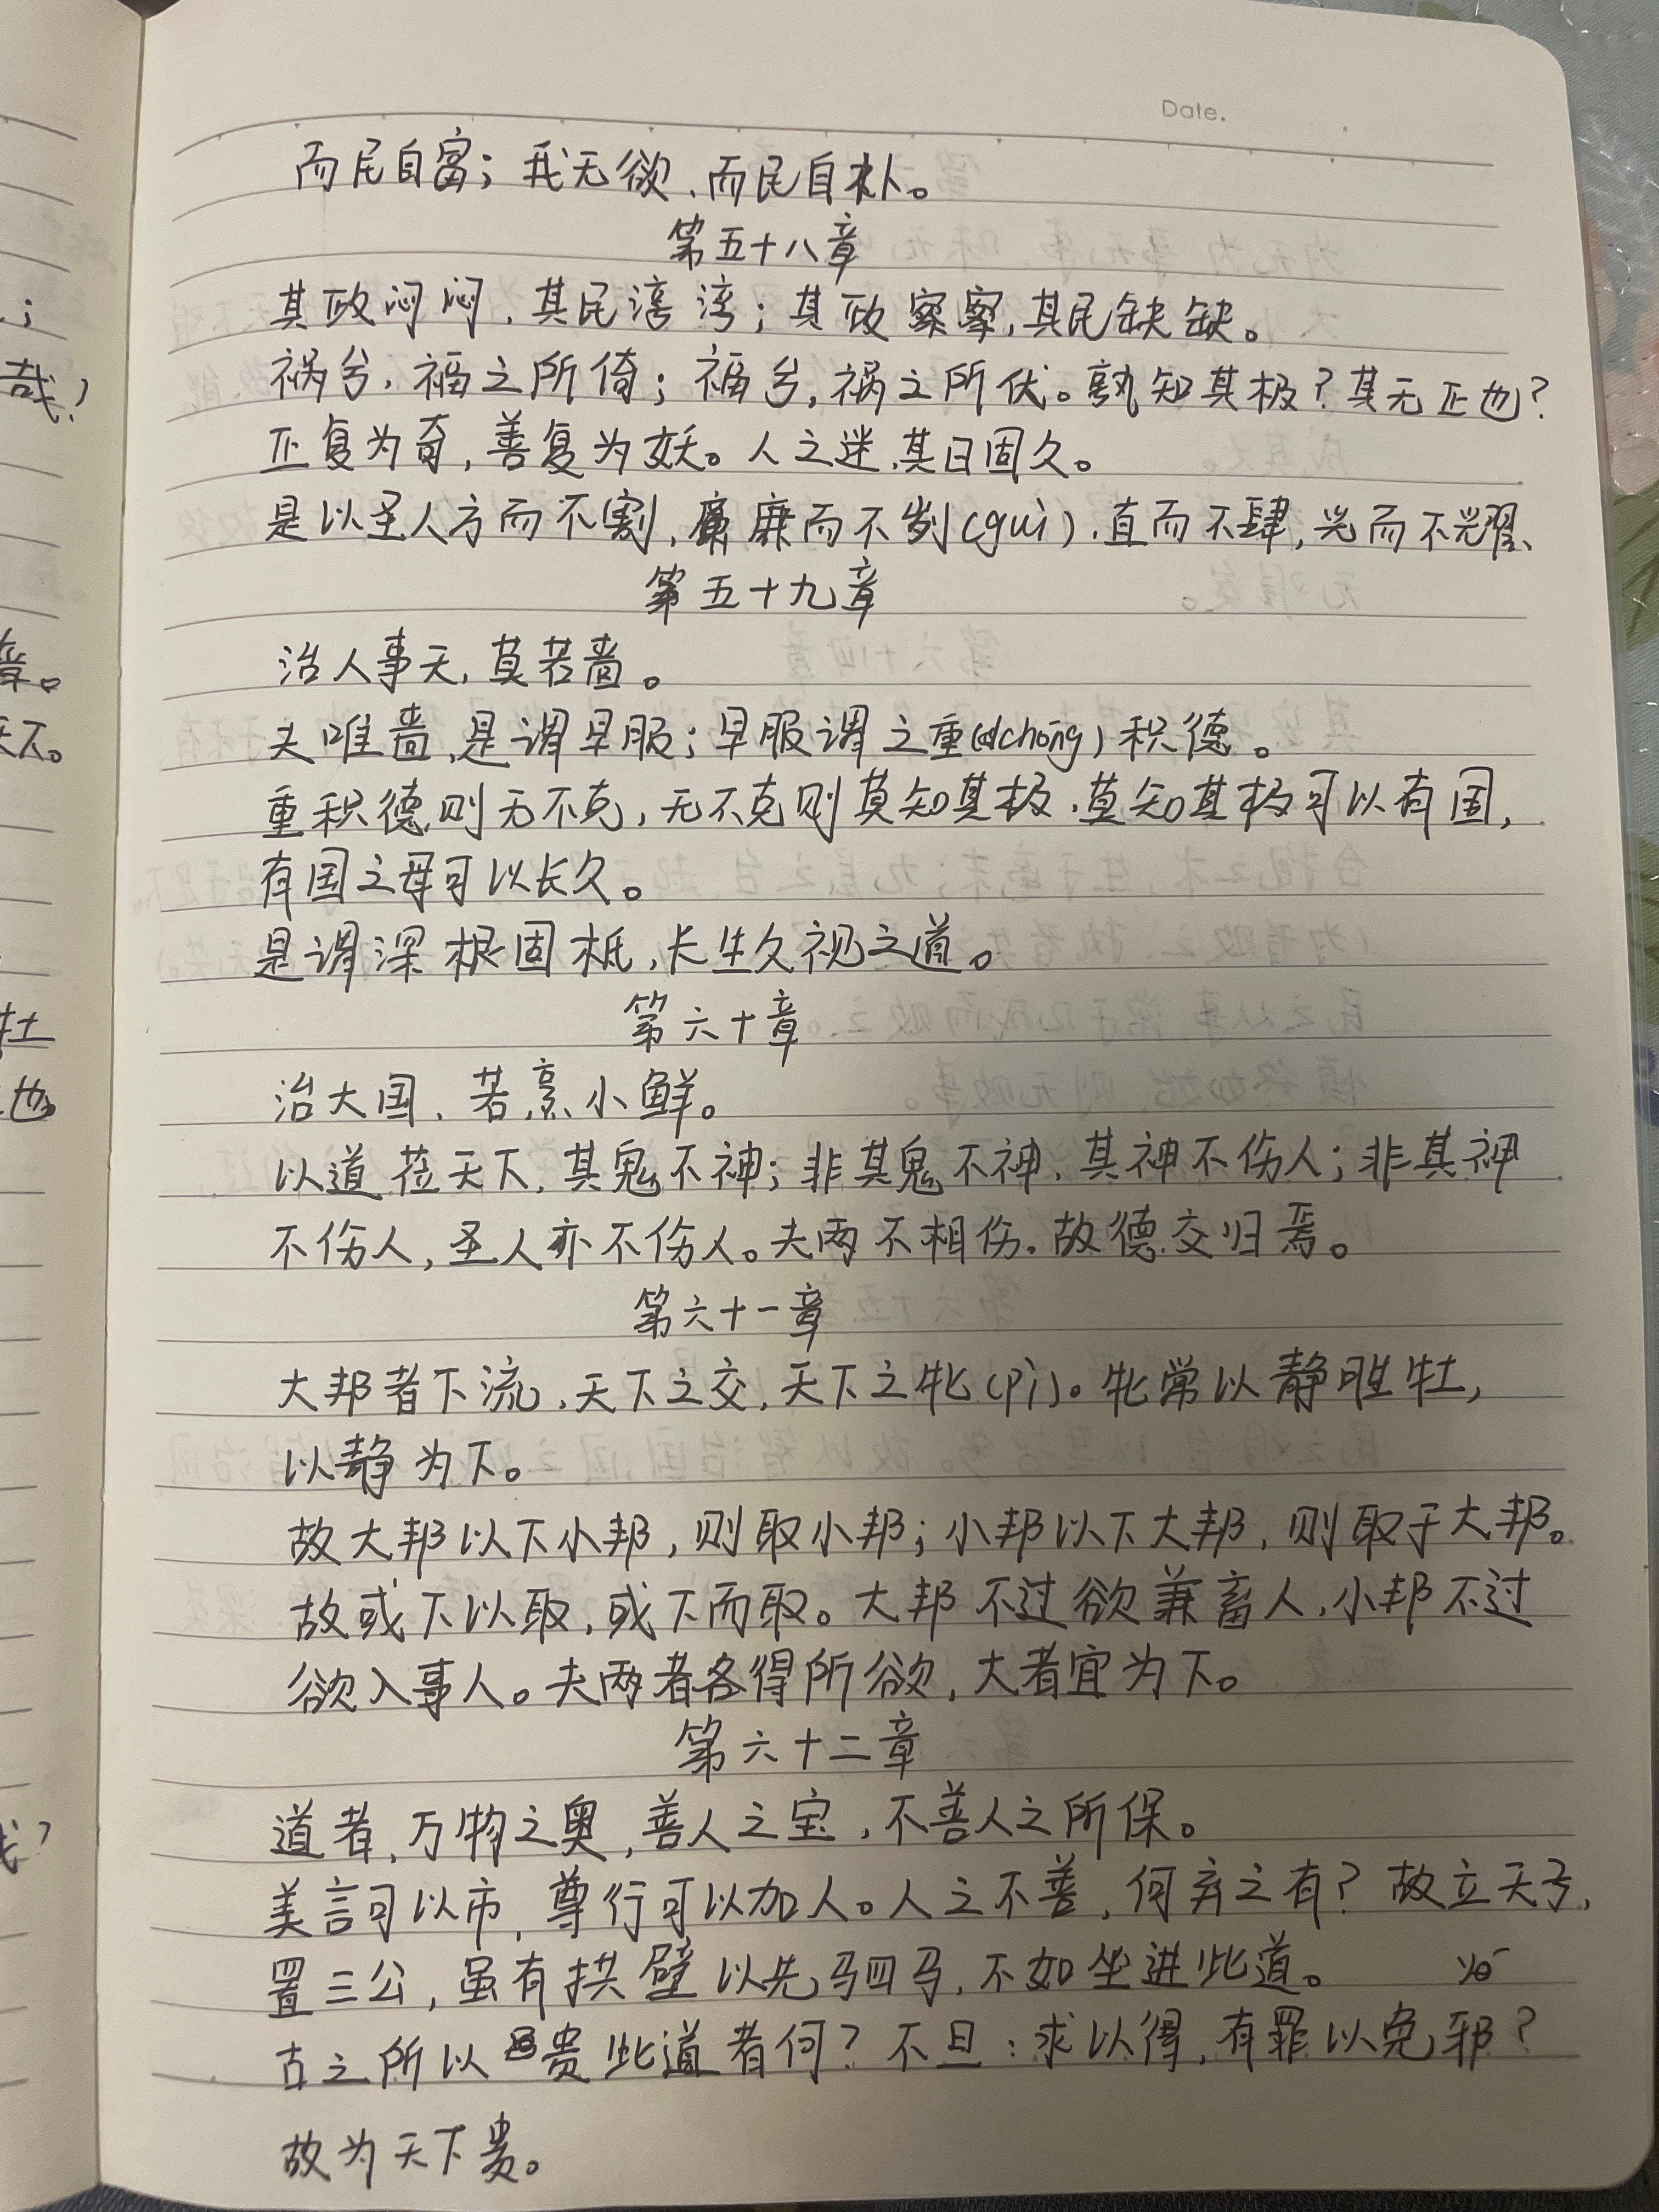 Date.
而民自富；我无欲、而民自朴。
第五十八章
其政闷闷，其民淳淳；其政察察，其民缺缺。
祸兮，福之所倚；福兮，祸之所伏。孰知其极？其无正也？
正复为奇，善复为妖。人之迷，其日固久。
是以圣人方而不割，廉而不刿(guì)，直而不肆，光而不耀、
第五十九章
治人事天，莫若啬。
夫唯啬，是谓早服；早服谓之重(chóng)积德。
重积德则无不克，无不克则莫知其极，莫知其极可以有国，
有国之母可以长久。
是谓深根固柢，长生久视之道。
第六十章
治大国，若烹小鲜。
以道莅天下，其鬼不神；非其鬼不神，其神不伤人；非其神
不伤人，圣人亦不伤人。夫两不相伤，故德交归焉。
第六十一章
大邦者下流，天下之交，天下之牝(pì)。牝常以静胜牡，
以静为下。
故大邦以下小邦，则取小邦；小邦以下大邦，则取于大邦。
故或下以取，或下而取。大邦不过欲兼畜人，小邦不过
欲入事人。夫两者各得所欲，大者宜为下。
第六十二章
道者，万物之奥，善人之宝，不善人之所保。
美言可以市，尊行可以加人。人之不善，何弃之有？故立天子，
置三公，虽有拱壁以先驷马，不如坐进此道。
古之所以贵此道者何？不曰：求以得，有罪以免邪？
故为天下贵。